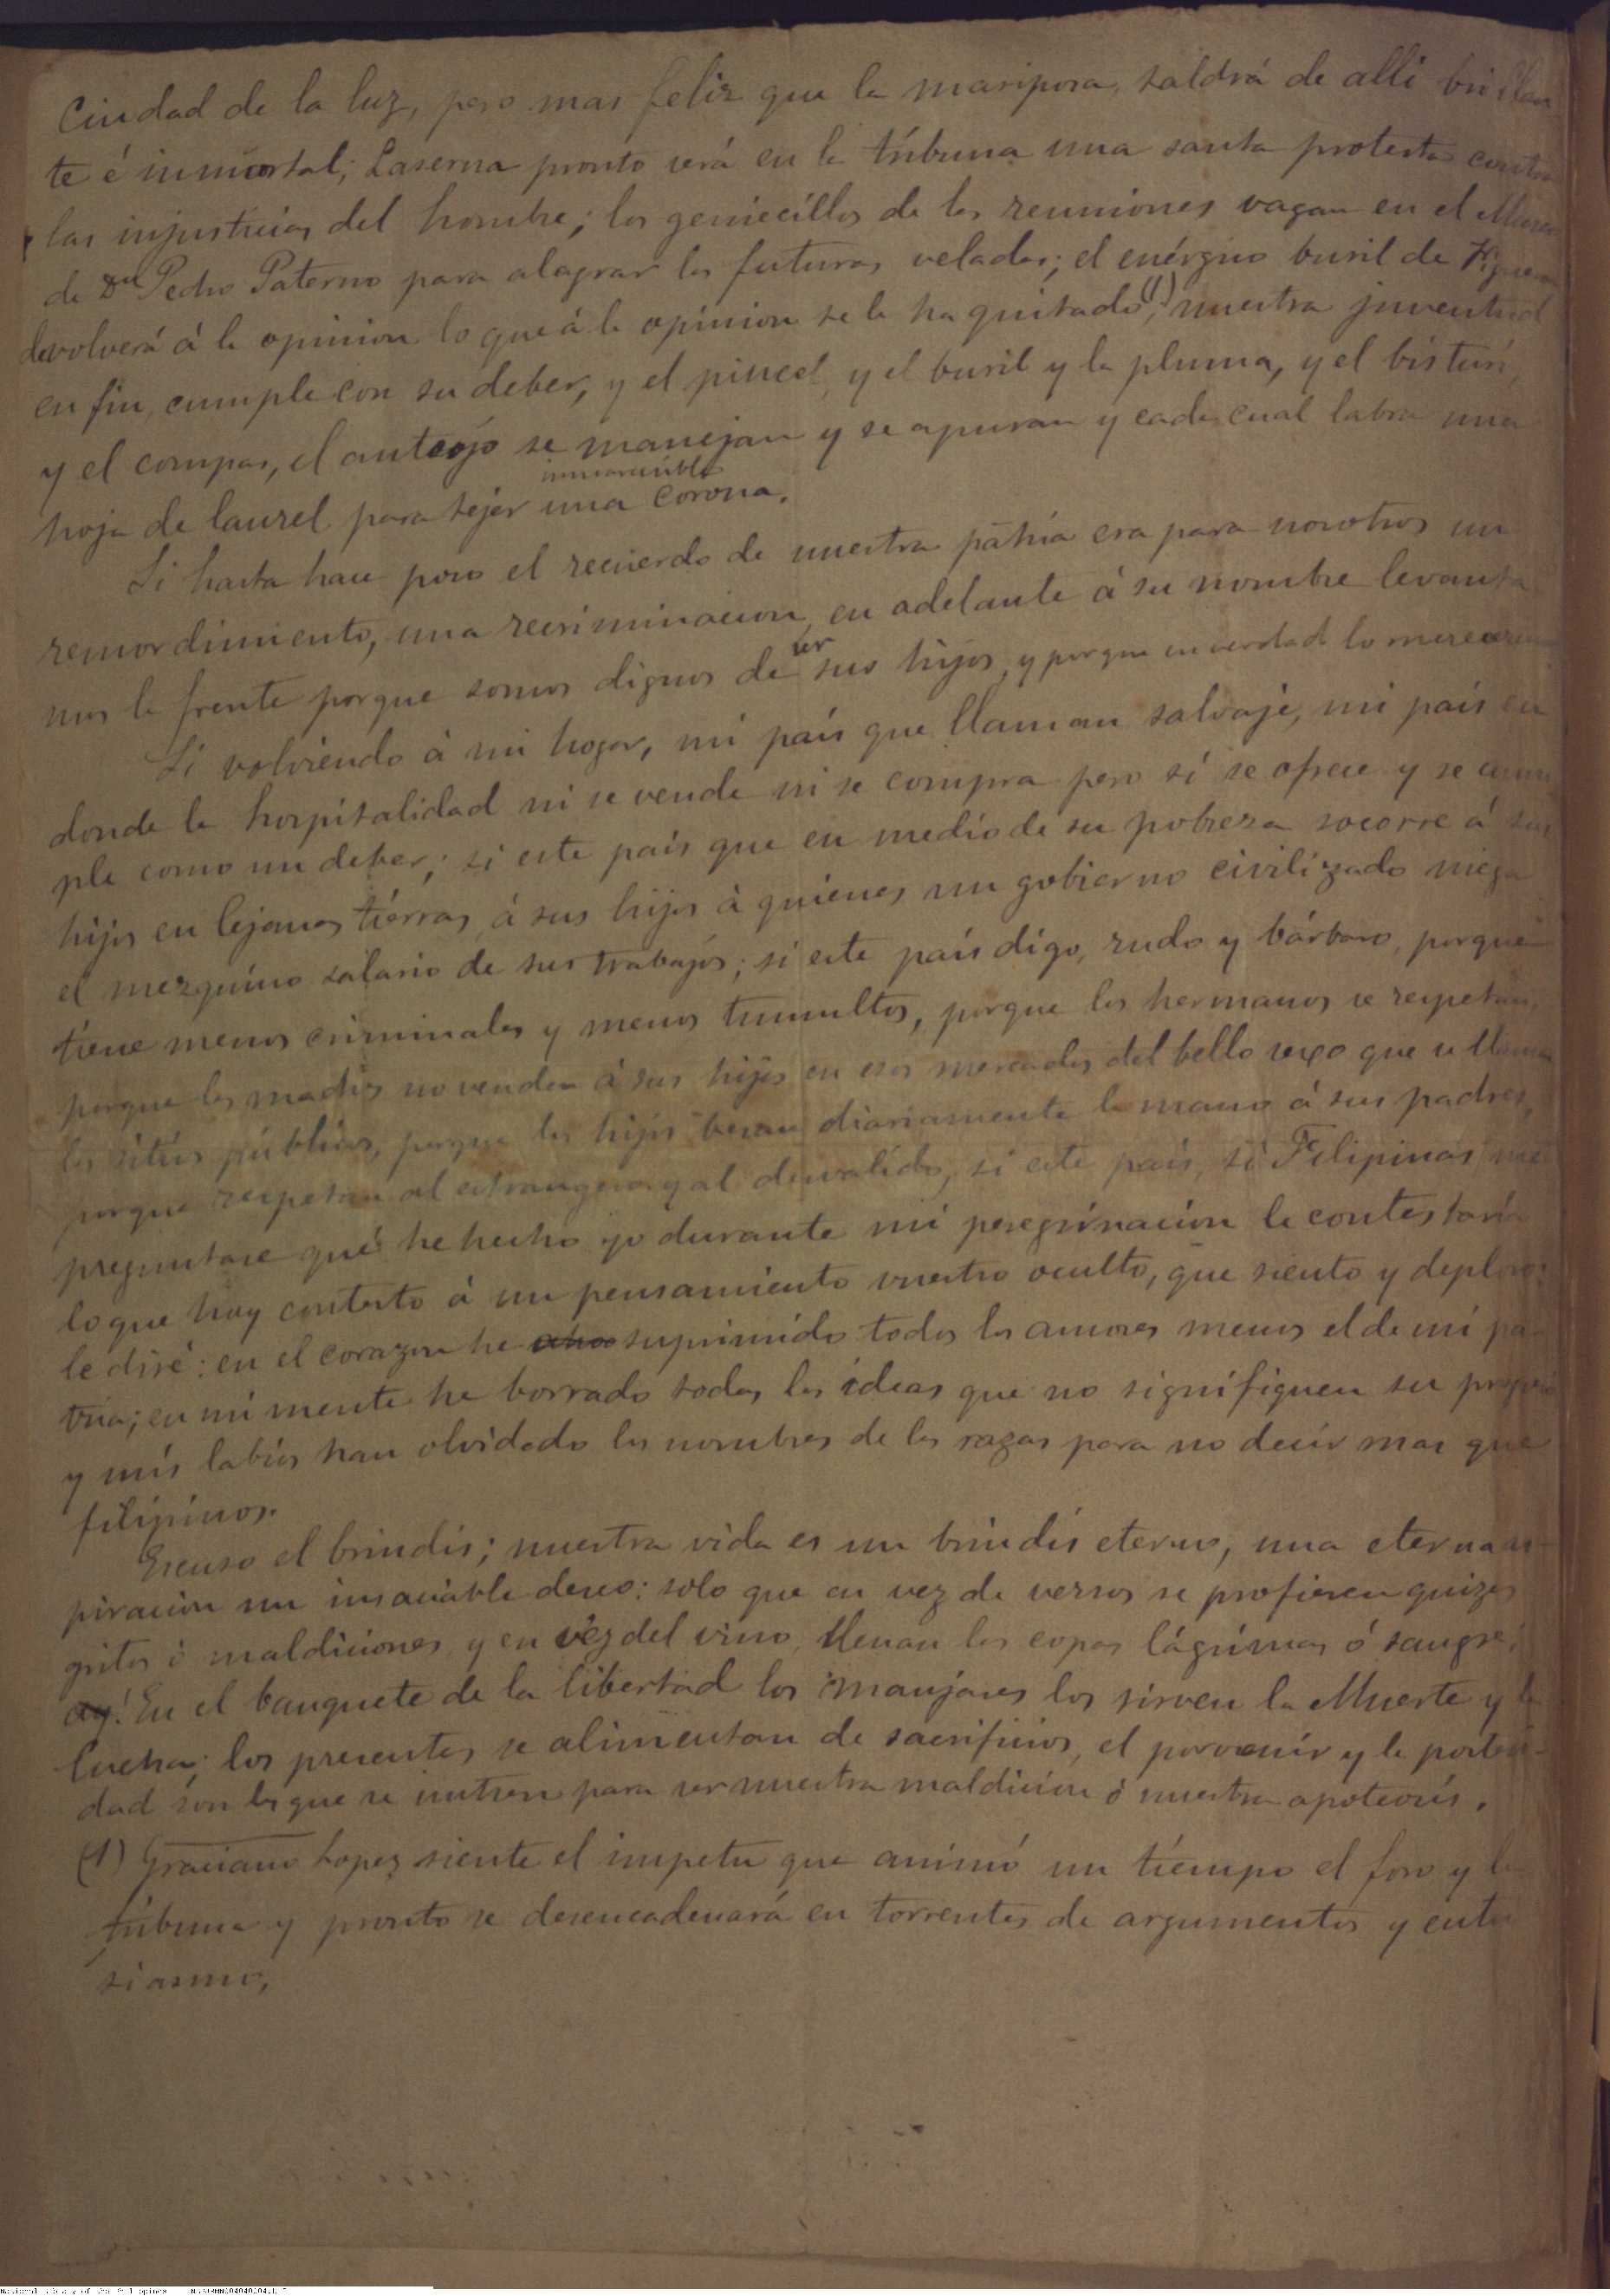 Ciudad de la luz, pero mas feliz que la mariposa, saldrá de alli brillan
te é inmortal; Laserna pronto será en la tribuna una santa protesta contra
las injusticias del hombre; los geniecillos de las reuniones vagan en el Museo
de Dn Pedro Paterno para alagrar las futuras veladas; el enérgico buril de Figueroa
devolverá á la opinion lo que á la opinion se la ha quitado(1); nuestra juventud
en fin, cumple con su deber, y el pincel, y el buril y la pluma, y el bisturí,
y el compas, el anteojo se manejan y se apuran y cada cual labra una
inmarcesible
hoja de laurel para tejer una corona.
Si hasta hace poco el recuerdo de nuestra pátria era para nosotros un
remordimiento, una recriminacion, en adelante á su nombre levanta
ser
mos la frente porque somos dignos de sus hijos, y porque en verdad lo merecere
Si volviendo á mi hogar, mi país que llaman salvaje, mi país en
donde la hospitalidad ni se vende ni se compra pero sí se ofrece y se cum
ple como un deber; si este país que en medio de su pobreza socorre á sus
hijos en lejanas tierras, á sus hijos á quienes un gobierno civilizado niega
el mezquino salario de sus trabajos; si este país digo, rudo y bárbaro, porque
tiene menos criminales y menos tumultos, porque los hermanos se respetan,
porque las madres no venden á sus hijas en esos mercados del bello sexo que se llaman
los sitios públicos, porque los hijos besan diariamente la mano á sus padres,
porque respetan al estrangero y al desvalido, si este país, si Filipinas me
preguntase qué he hecho yo durante mi peregrinacion le contestaría
lo que hoy contesto á un pensamiento vuestro oculto, que siento y deploro:
le diré: en el corazon he suprimido todos los amores menos el de mi pa
tria; en mi mente he borrado todas las ideas que no signifiquen su progreso
y mis labios han olvidado los nombres de las razas para no decir mas que
filipinos.
Escuso el brindis; nuestra vida es un brindis eterno, una eterna as-
piracion un insaciable deseo: solo que en vez de versos se profieren quizas
gritos ó maldiciones, y en vez del vino, llenan las copas lágrimas ó sangre;
ay! En el banquete de la libertad los manjares los sirven la Muerte y la
Lucha; los presentes se alimentan de sacrificios, el porvenir y la posteri-
dad son los que se nutren para ser nuestra maldicion ó nuestra apoteosis.
(1) Graciano Lopez siente el impetu que animó un tiempo el foro y la
tribuna y pronto se desencadenará en torrentes de argumentos y entu
siasmo,